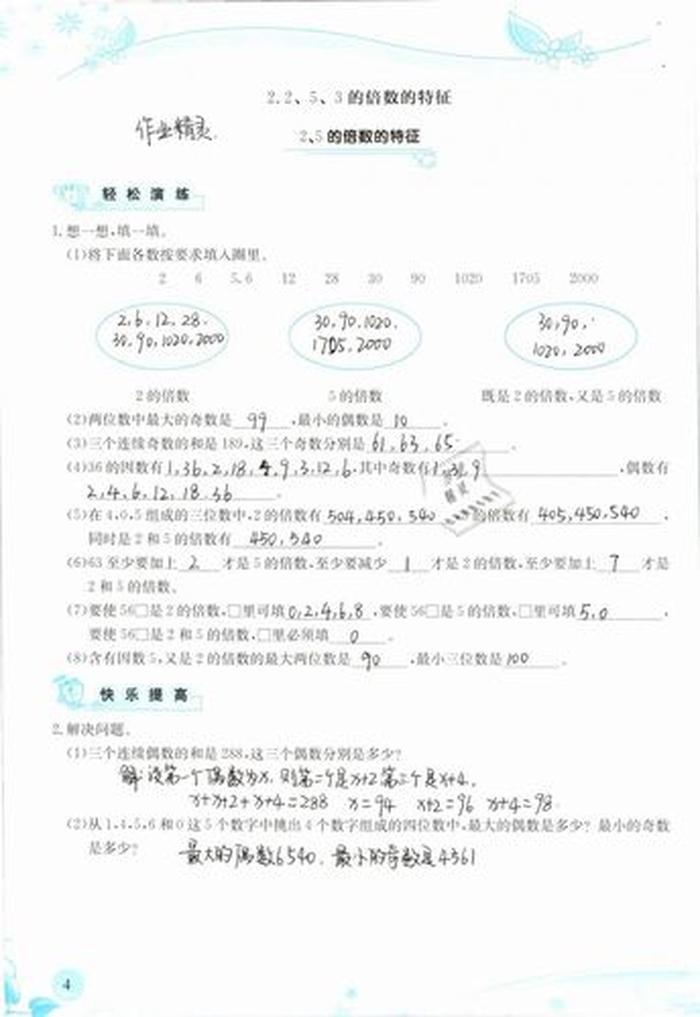 2.2、5、3的倍数的特征
作业精灵.
2、5的倍数的特征
轻松演练
1.想一想,填一填。
(1)将下面各数按要求填入圈里。
2 6 5.6 12 28 30 90 1020 1705 2000
2.6.12.28. 30.90.1020. 30,90,
30.90,1020,2000 1705.2000 1020,2000
2的倍数 5的倍数 既是2的倍数,又是5的倍数
(2)两位数中最大的奇数是 99 ,最小的偶数是 10 。
(3)三个连续奇数的和是189,这三个奇数分别是 61,63,65 。
(4)36的因数有1,36,2,18,4,9,3,12,6.其中奇数有1,3,9 ,偶数有
2,4,6,12,18.36 。
(5)在4,0,5组成的三位数中,2的倍数有 504,450,540 的倍数有 405,450,540 ,
同时是2和5的倍数有 450,540 。
(6)63至少要加上 2 才是5的倍数,至少要减少 1 才是2的倍数,至少要加上 7 才是
2和5的倍数。
(7)要使56□是2的倍数,□里可填0,2,4,6,8 ,要使56□是5的倍数,□里可填5,0 ,
要使56□是2和5的倍数,□里必须填 0 。
(8)含有因数5,又是2的倍数的最大两位数是 90 ,最小三位数是100 。
快乐提高
2.解决问题。
(1)三个连续偶数的和是288,这三个偶数分别是多少?
解:设第一个偶数为x,则第二个是x+2第三个是x+4.
x+x+2+x+4=288 x=94 x+2=96 x+4=98
(2)从1,4,5,6和0这5个数字中挑出4个数字组成的四位数中,最大的偶数是多少?最小的奇数
是多少? 最大的偶数6540,最小的奇数是4361
4